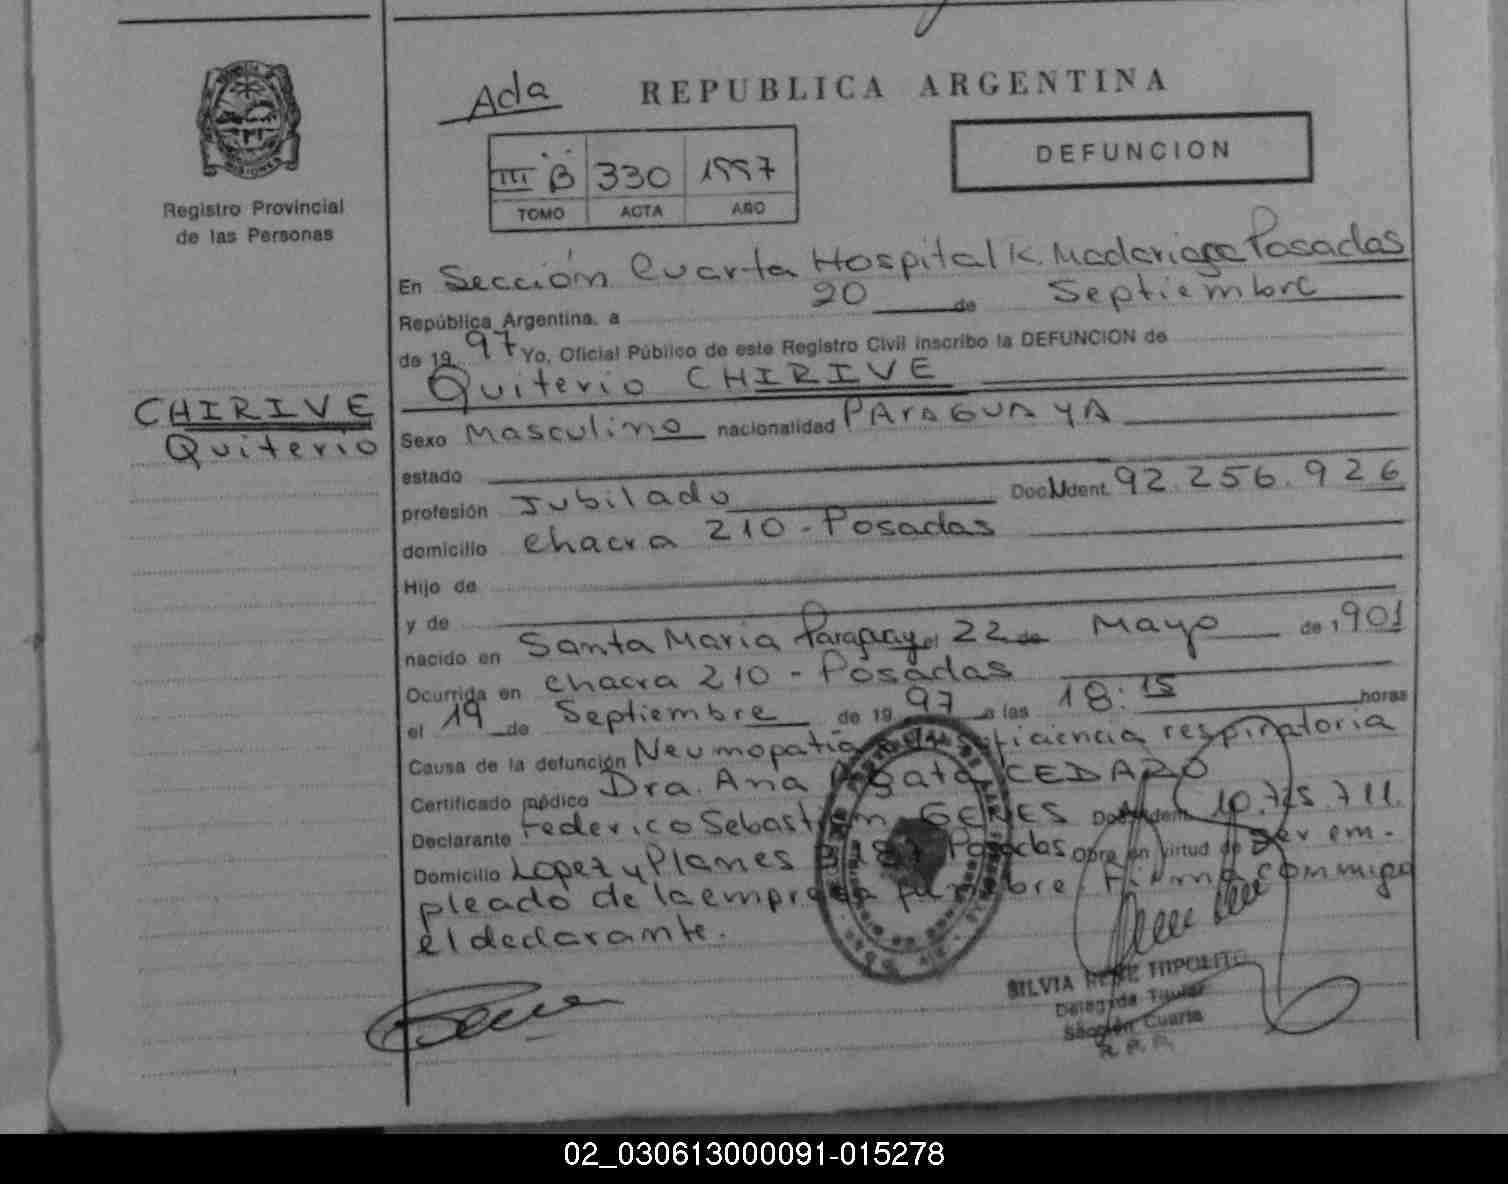 Ada REPUBLICA ARGENTINA
III B 330 1997
TOMO ACTA AÑO
DEFUNCION
MISIONES
Registro Provincial
de las Personas
En Sección Cuarta Hospital K. Madariaga Posadas
República Argentina, a 20 de Septiembre
de 19 97 Yo, Oficial Público de este Registro Civil inscribo la DEFUNCION de
Quiterio CHIRIVE
CHIRIVE
Quiterio
Sexo Masculino nacionalidad PARAGUAYA
estado
profesión Jubilado Doc. Ident. 92.256.926
domicilio chacra 210 - Posadas
Hijo de
y de
nacido en Santa Maria Paraguay el 22 de Mayo de 1901
Ocurrida en chacra 210 - Posadas
el 19 de Septiembre de 19 97 a las 18:15 horas
Causa de la defunción Neumopatia respiratoria
Certificado médico Dra. Ana CEDARO
Declarante Federico Sebastian Doc. Ident. 10.725.711.
Domicilio Lopez y Planes Posadas Obra en virtud de ser em-
pleado de la empresa funebre. Firma conmigo
el declarante.
SILVIA HIPOLITO
Delegada Titular
Sección Cuarta
R. P. P.
02_030613000091-015278